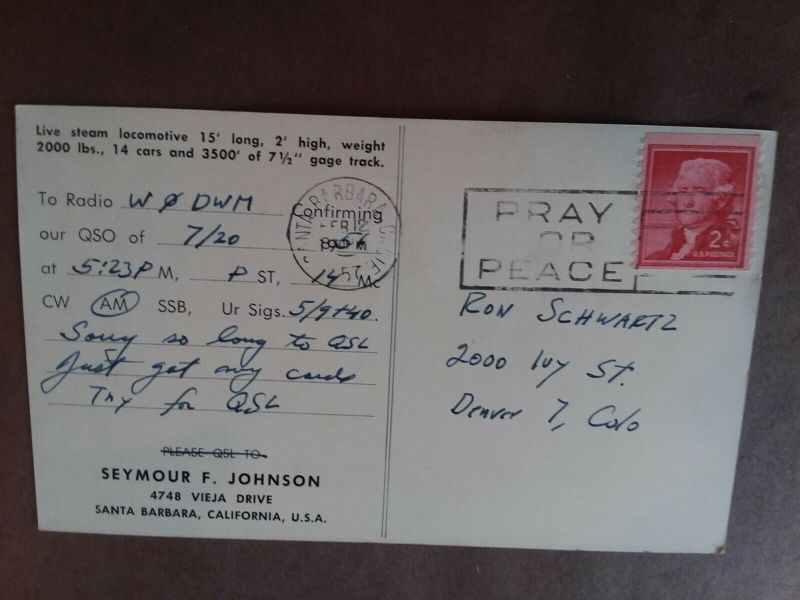 Live steam locomotive 15' long, 2' high, weight
2000 lbs., 14 cars and 3500' of 7½" gage track.
To Radio W Ø DWM Confirming
our QSO of 7/20 1956
at 5:23P M, P ST, 14 Mc
CW AM SSB, Ur Sigs. 5/9+40
Sorry so long to QSL
Just got my cards
Tnx for QSL
PLEASE QSL TO
SEYMOUR F. JOHNSON
4748 VIEJA DRIVE
SANTA BARBARA, CALIFORNIA, U.S.A.
SANTA BARBARA CALIF.
FEB 12
PM
1957
PRAY
FOR
PEACE
2¢
U.S. POSTAGE
RON SCHWARTZ
2000 Ivy St.
Denver 7, Colo